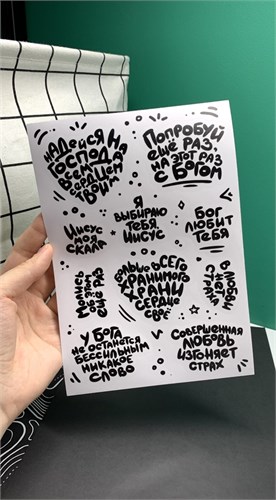 НАДЕЙСЯ НА
ГОСПОДА
ВСЕМ
СЕРДЦЕМ
ТВОИМ
ПОПРОБУЙ
ЕЩЁ РАЗ,
НА ЭТОТ РАЗ
С БОГОМ
Я
ВЫБИРАЮ
ТЕБЯ,
ИИСУС
ИИСУС
МОЯ
СКАЛА
БОГ
ЛЮБИТ
ТЕБЯ
БОЛЬШЕ ВСЕГО
ХРАНИМОГО
ХРАНИ
СЕРДЦЕ
СВОЁ
В ЛЮБВИ
НЕТ
СТРАХА
У БОГА
НЕ ОСТАНЕТСЯ
БЕССИЛЬНЫМ
НИКАКОЕ
СЛОВО
СОВЕРШЕННАЯ
ЛЮБОВЬ
ИЗГОНЯЕТ
СТРАХ